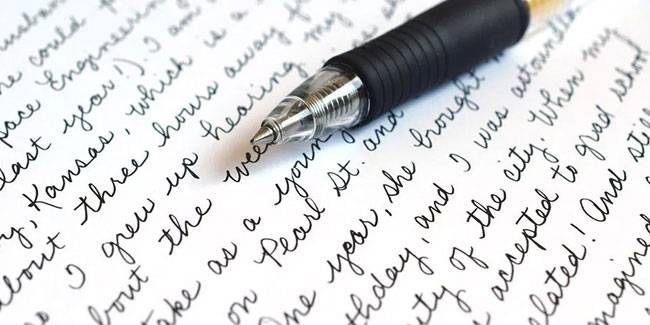 could
pace Engineering
last year!). I am
Kansas, which is a
about three hours away
I grew up hearing my
bout the wee
take as a young
on Pearl St. and
One year, she brought
thday, and I was astound
ty of the city. When my
accepted to grad school
lated! And still
magined